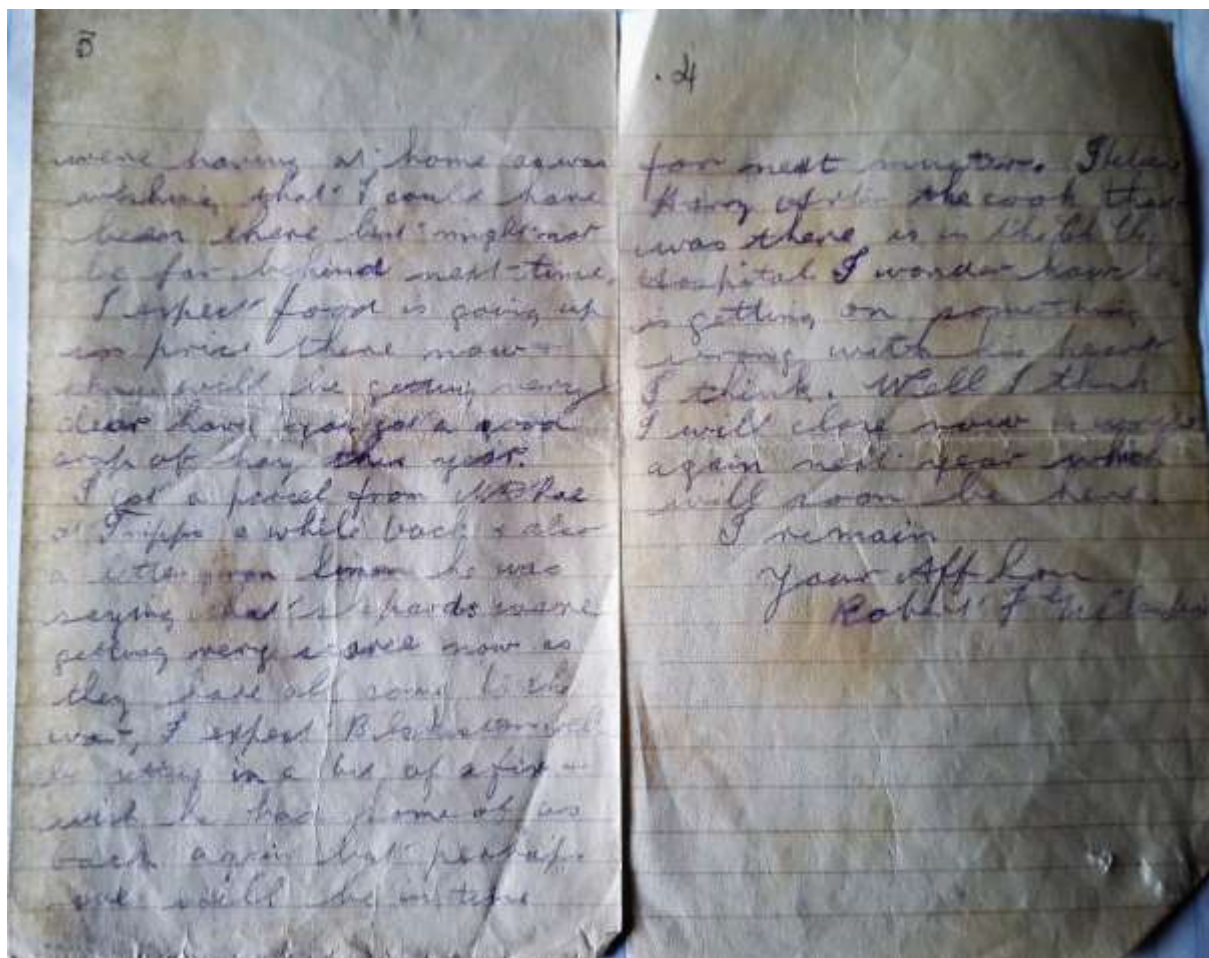 5
were having at home as was
wishing that I could have
been there but might not
be far behind next time.
I expect food is going up
in price there now
will be getting very
dear have you got a good
crop of hay this year.
I got a parcel from
a while back & also
a letter from he was
saying that were
getting very scarce now as
they have all gone to the
war, I expect will
be getting in a bit of a fix
wish he had some of us
back again but perhaps
we will be in time
4
for next . I
the cook that
was there is in the
Hospital I wonder how he
is getting on something
wrong with his heart
I think. Well I think
I will close now
again next year which
will soon be here.
I remain
Your Aff Son
Robert F